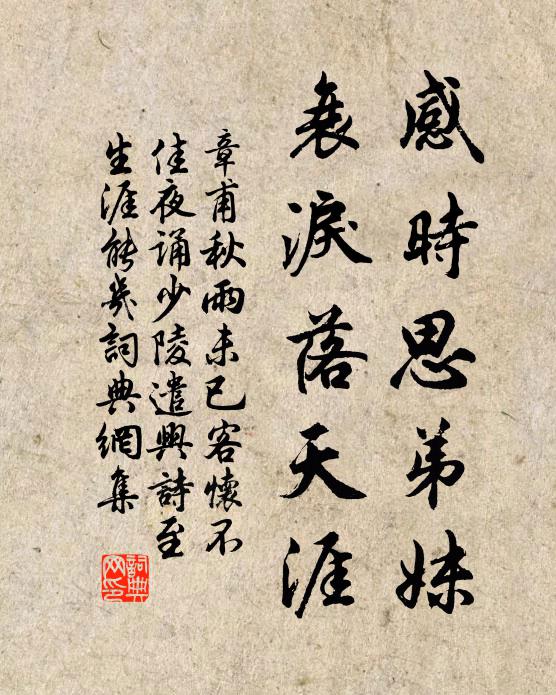 感時思弟妹
衰淚落天涯
章甫秋雨未已客懷不
佳夜誦少陵遣興詩至
生涯能幾詞典網集
詞典
网印